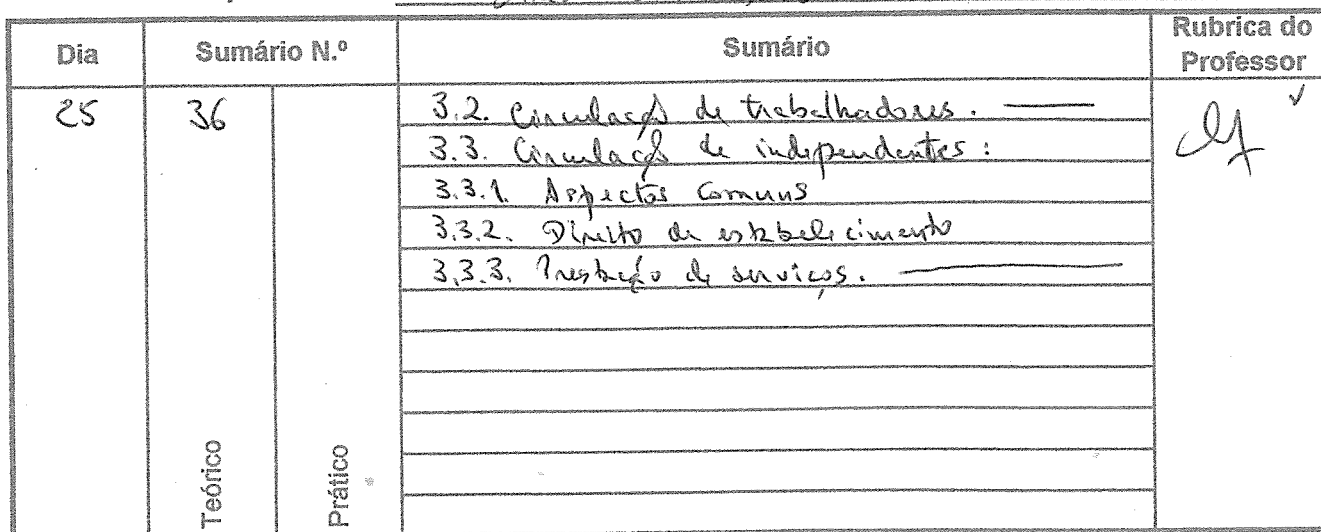 Dia
Sumário N.º
Sumário
Rubrica do
Professor
25
36
3.2. Circulação de trabalhadores.
3.3. Circulação de independentes:
3.3.1. Aspectos Comuns
3.3.2. Direito de estabelecimento
3.3.3. Prestação de serviços.
Teórico
Prático